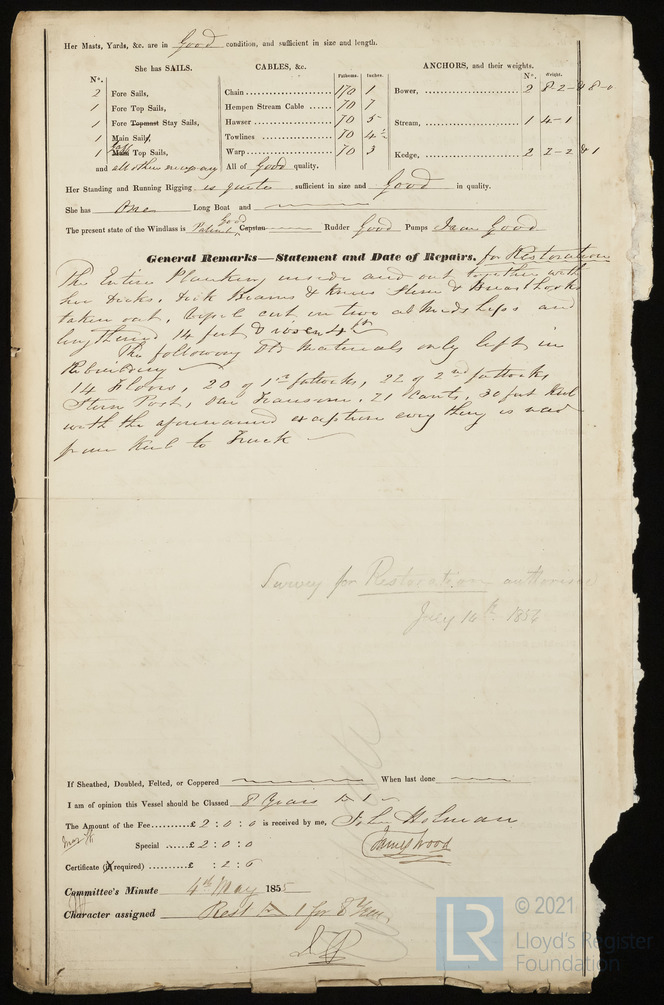 Her Masts, Yards, &c. are in Good condition, and sufficient in size and length.
She has SAILS. CABLES, &c. ANCHORS, and their weights.
N°. Fathoms. Inches. N°. Weight.
2 Fore Sails, Chain 170 1 Bower, 2 8-2-
1 Fore Top Sails, Hempen Stream Cable 70 7
1 Fore Topmast Stay Sails, Hawser 70 5 Stream, 1 4-1
1 Main Sails, Towlines 70 4½
1 Main Top Sails, Warp 70 3 Kedge, 2 2-2 & 1
and all other necessary All of Good quality.
Her Standing and Running Rigging is quite sufficient in size and Good in quality.
She has One Long Boat and
The present state of the Windlass is Patent Good Capstan Rudder Good Pumps Iron Good
General Remarks—Statement and Date of Repairs. for Restoration
The Entire Planking inside and out together with
her Decks. Deck Beams & Knees Stem & Breasthooks
taken out, cut in two at Midships and
lengthened 14 feet & risen 4 ft
The following Old Materials only left in
Rebuilding
14 Floors, 20 of 1st futtocks, 22 of 2nd futtocks
Stern Post, One Transom. 21 Cants, 30 feet Keel
with the aforenamed exception every thing is new
from Keel to Truck
Survey for Restoration authorised
July 14th 1856
If Sheathed, Doubled, Felted, or Coppered When last done
I am of opinion this Vessel should be Classed 8 Years A 1
The Amount of the Fee £ 2 : 0 : 0 is received by me, John Holman
Special £ 2 : 0 : 0 James Wood
Certificate (if required) £ : 2 : 6
Committee's Minute 4th May 1855
Character assigned Rest A 1 for 8 Years
LR
© 2021
Lloyd's Register
Foundation